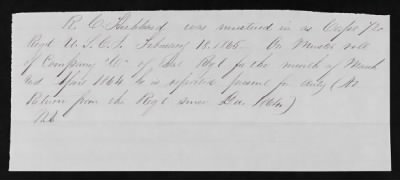 R. C. Hubbard was mustered in as Corpl 72
Regt U.S.C.I. February 18. 1865. On Muster roll
of Company "A" of that Regt for the months of March
and April 1864 he is reported present for duty (No
Return from the Regt since Dec. 1864)